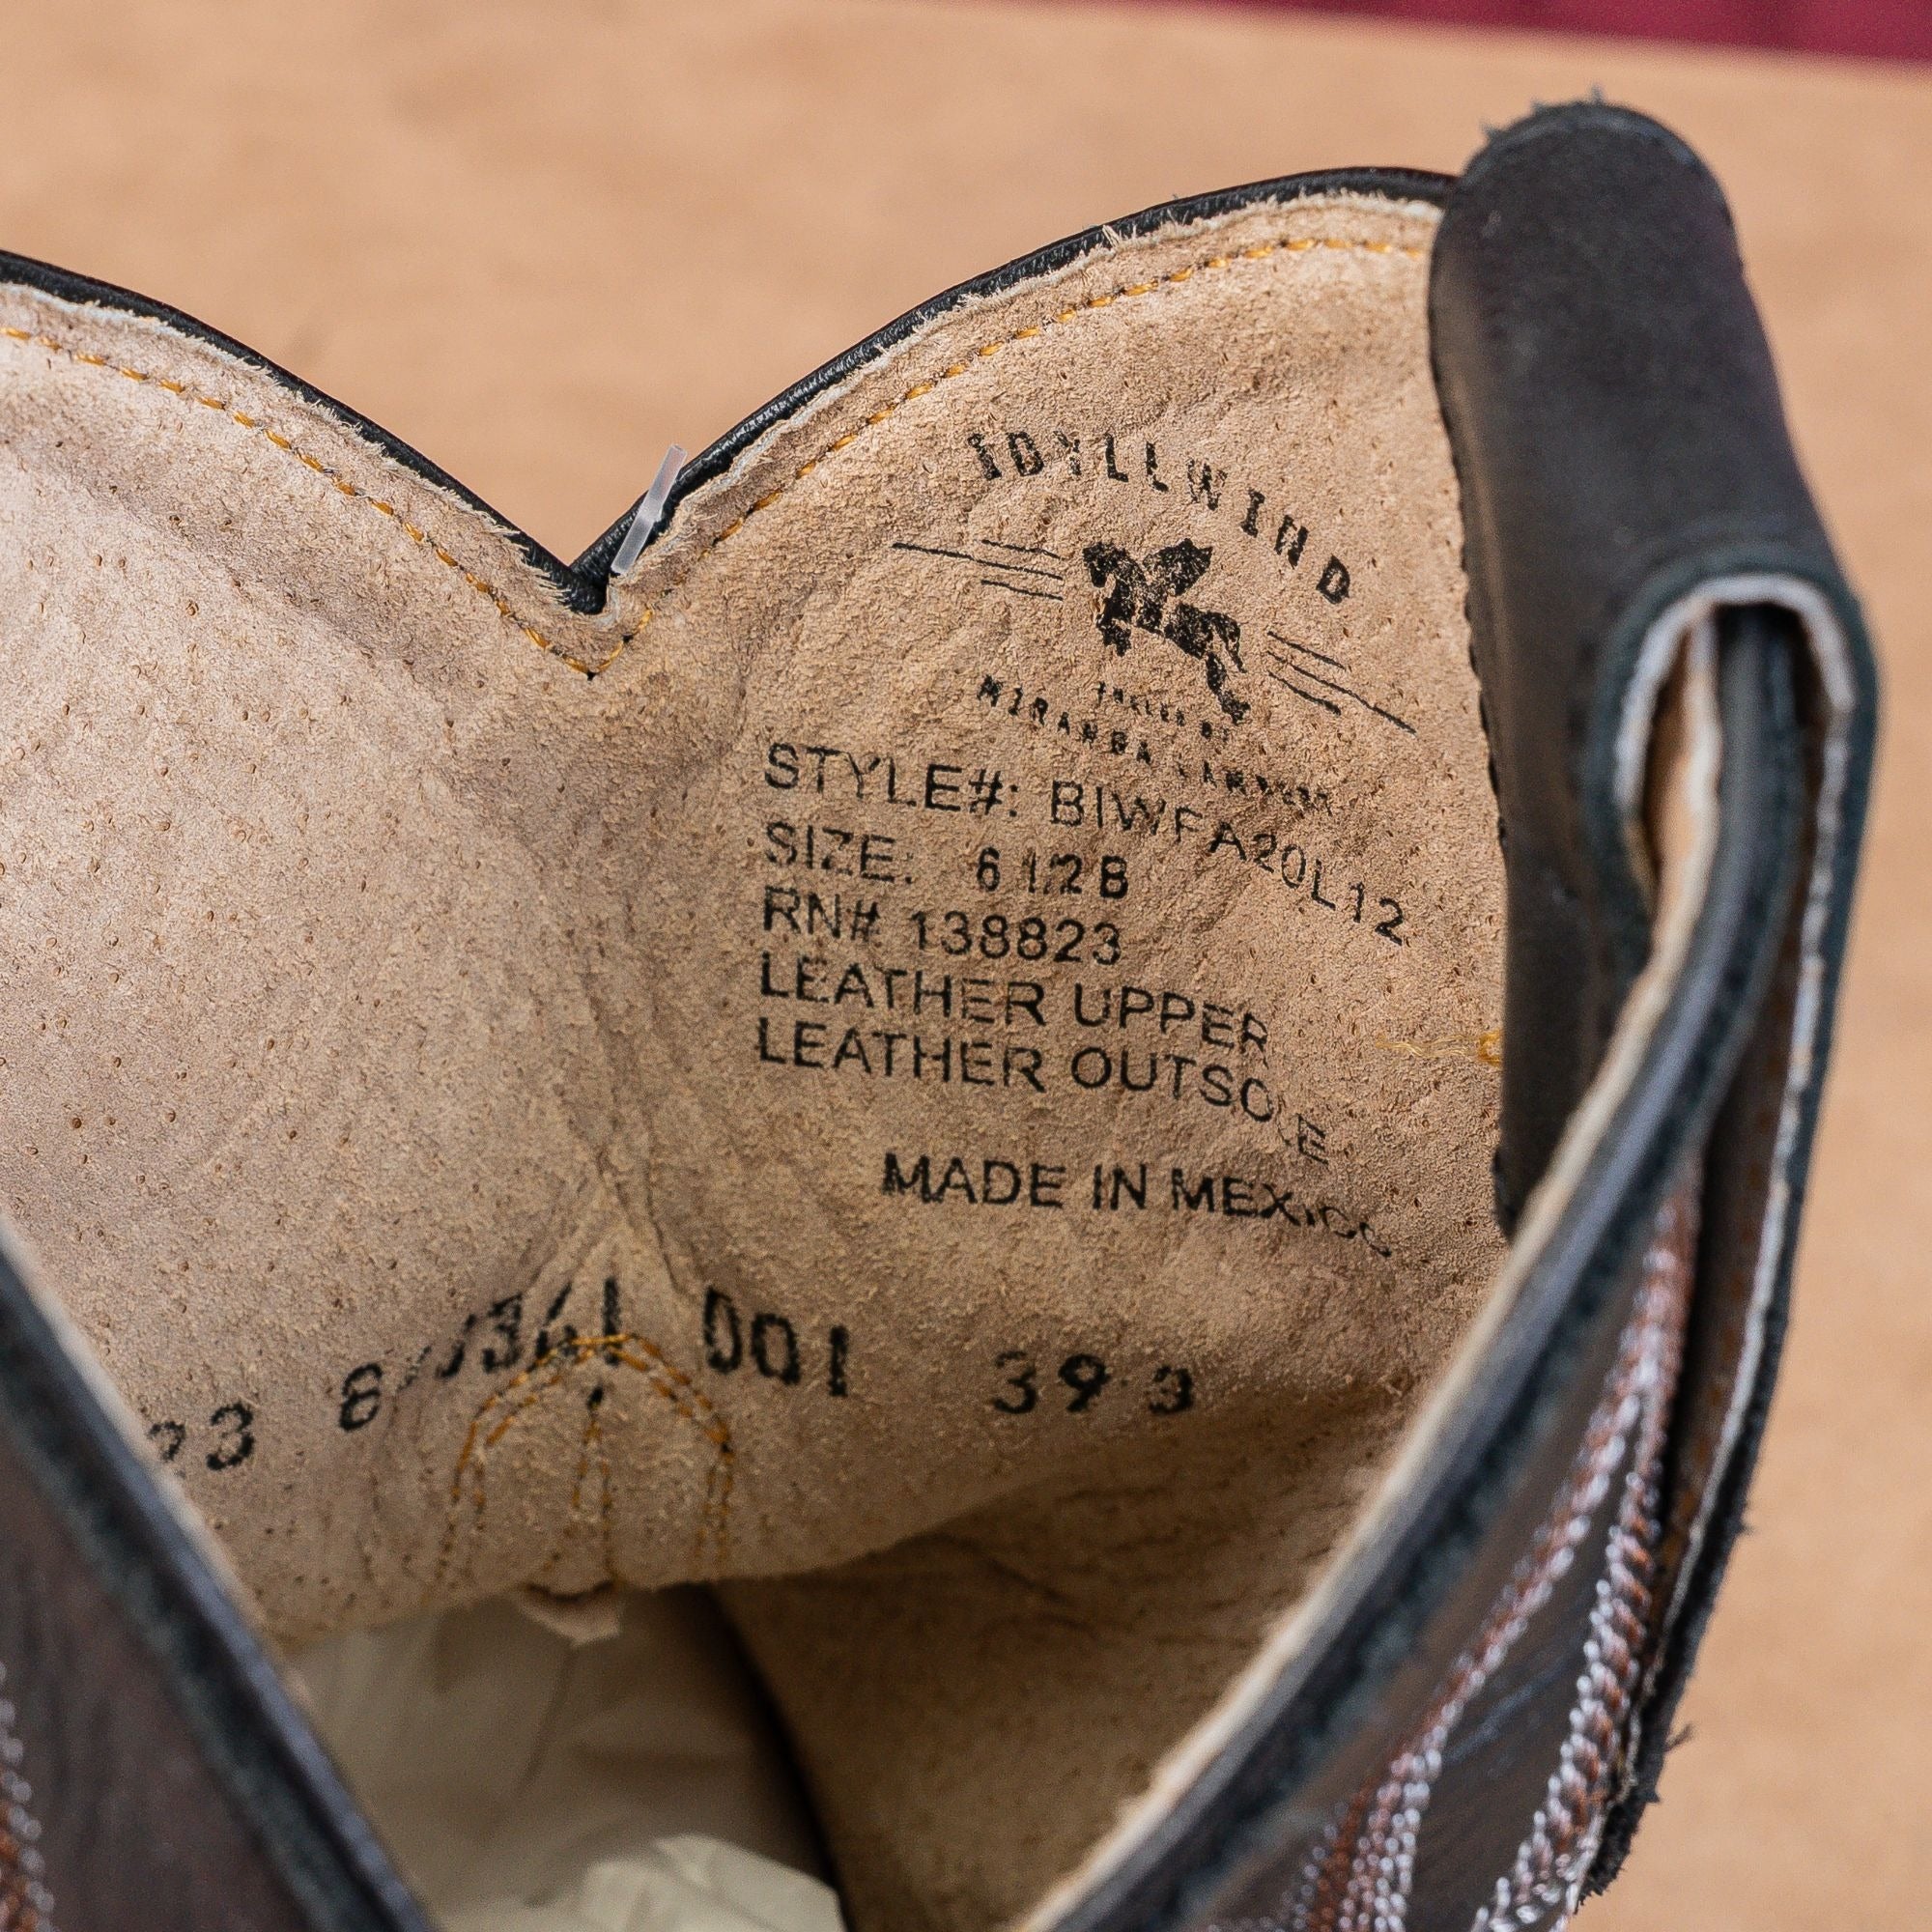 IDYLLWIND
FUELED BY
MIRANDA LAMBERT
STYLE#: BIWFA20L12
SIZE: 6 1/2 B
RN# 138823
LEATHER UPPER
LEATHER OUTSOLE
MADE IN MEXICO
001 39 3